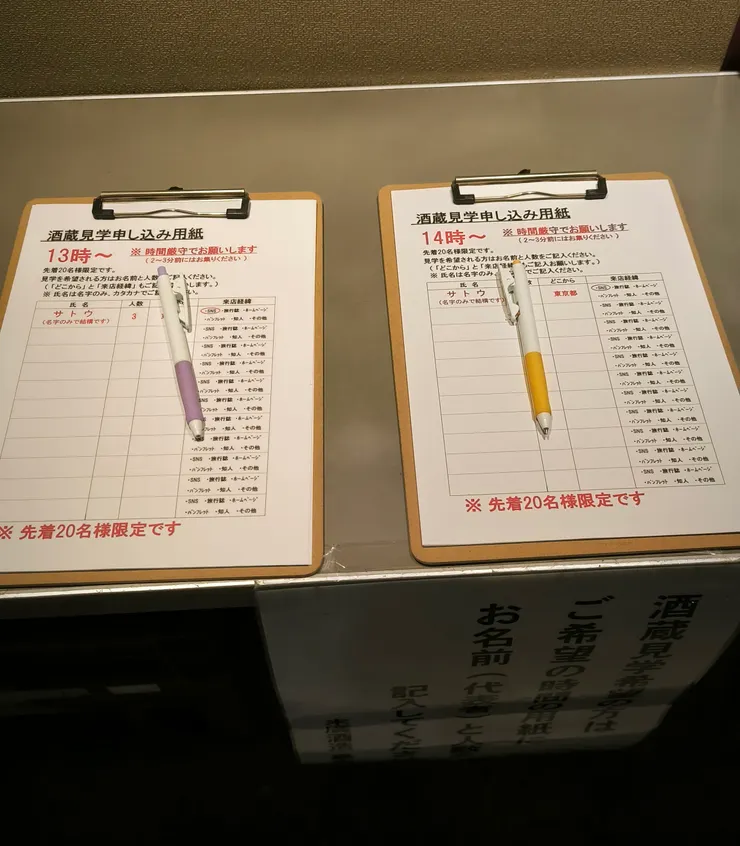 酒蔵見学申し込み用紙
13時～ ※ 時間厳守でお願いします
（2～3分前にはお集りください）
先着20名様限定です。
見学を希望される方はお名前と人数をご記入ください。
（「どこから」と「来店経緯」もご記入お願いします。）
※ 氏名は名字のみ、カタカナでご記入ください。
氏 名 人数 来店経緯
サトウ 3 ・SNS ・旅行誌 ・ホームページ
（名字のみで結構です） ・パンフレット ・知人 ・その他
・SNS ・旅行誌 ・ホームページ
・パンフレット ・知人 ・その他
・SNS ・旅行誌 ・ホームページ
・パンフレット ・知人 ・その他
・SNS ・旅行誌 ・ホームページ
・パンフレット ・知人 ・その他
・SNS ・旅行誌 ・ホームページ
・パンフレット ・知人 ・その他
・SNS ・旅行誌 ・ホームページ
・パンフレット ・知人 ・その他
・SNS ・旅行誌 ・ホームページ
・パンフレット ・知人 ・その他
・SNS ・旅行誌 ・ホームページ
・パンフレット ・知人 ・その他
※ 先着20名様限定です
酒蔵見学申し込み用紙
14時～ ※ 時間厳守でお願いします
（2～3分前にはお集りください）
先着20名様限定です。
見学を希望される方はお名前と人数をご記入ください。
（「どこから」と「来店経緯」もご記入お願いします。）
※ 氏名は名字のみ、 でご記入ください。
氏 名 どこから 来店経緯
サトウ 東京都 ・SNS ・旅行誌 ・ホームページ
（名字のみで結構です） ・パンフレット ・知人 ・その他
・SNS ・旅行誌 ・ホームページ
・パンフレット ・知人 ・その他
・SNS ・旅行誌 ・ホームページ
・パンフレット ・知人 ・その他
・SNS ・旅行誌 ・ホームページ
・パンフレット ・知人 ・その他
・SNS ・旅行誌 ・ホームページ
・パンフレット ・知人 ・その他
・SNS ・旅行誌 ・ホームページ
・パンフレット ・知人 ・その他
・SNS ・旅行誌 ・ホームページ
・パンフレット ・知人 ・その他
・SNS ・旅行誌 ・ホームページ
・パンフレット ・知人 ・その他
※ 先着20名様限定です
酒蔵見学希望の方は
ご希望の時間の用紙に
お名前（代表者）と人数
記入してくださ